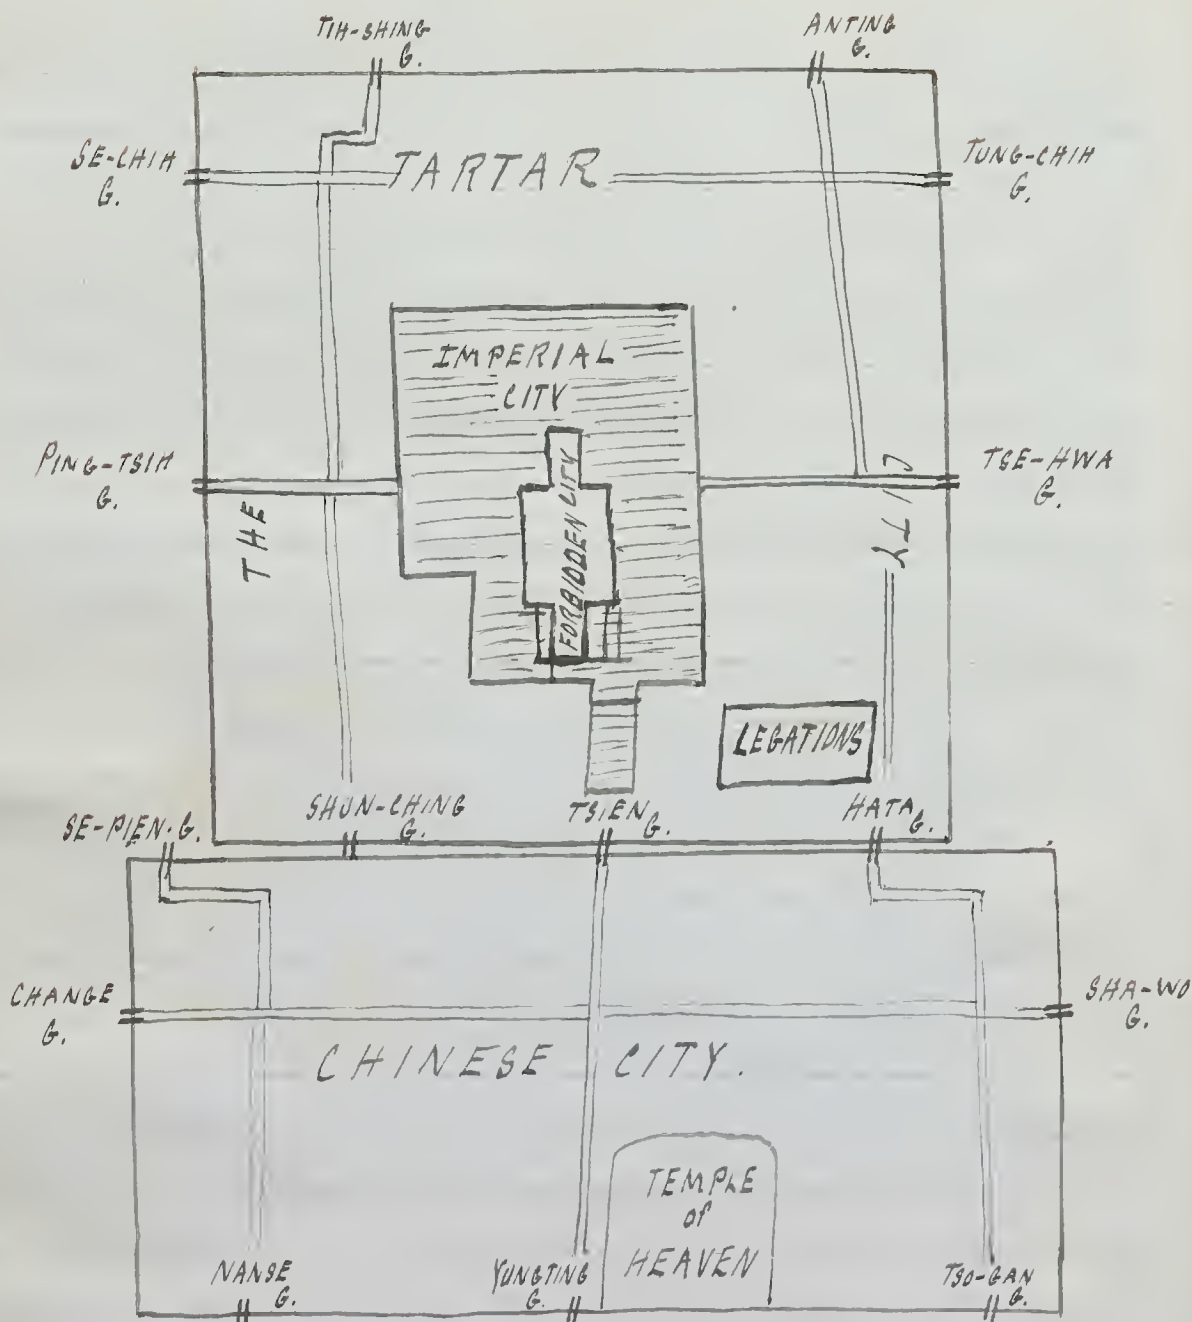 TIH-SHING
G.
ANTING
G.
SE-CHIH
G.
TARTAR
TUNG-CHIH
G.
IMPERIAL
CITY
PING-TSIH
G.
TSE-HWA
G.
THE
FORBIDDEN CITY
CITY
LEGATIONS
SE-PIEN. G.
SHUN-CHING
G.
TSIEN
G.
HATA
G.
CHANGE
G.
SHA-WO
G.
CHINESE CITY.
TEMPLE
of
HEAVEN
NANSE
G.
YUNGTING
G.
TSO-GAN
G.